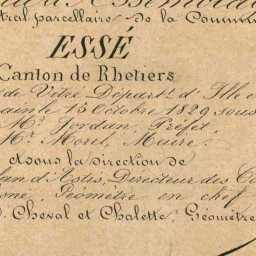 tral parcellaire de la Commun
ESSÉ
Canton de Rhetiers
de Vitré Départ.t d'Ille e
le 15 Octobre 1829 sous
Mr. Jordan, Préfet,
Mr. Morel, Maire.
et sous la direction de
Directeur des C
Géomètre en chef
Cheval et Chalette, Géomètre